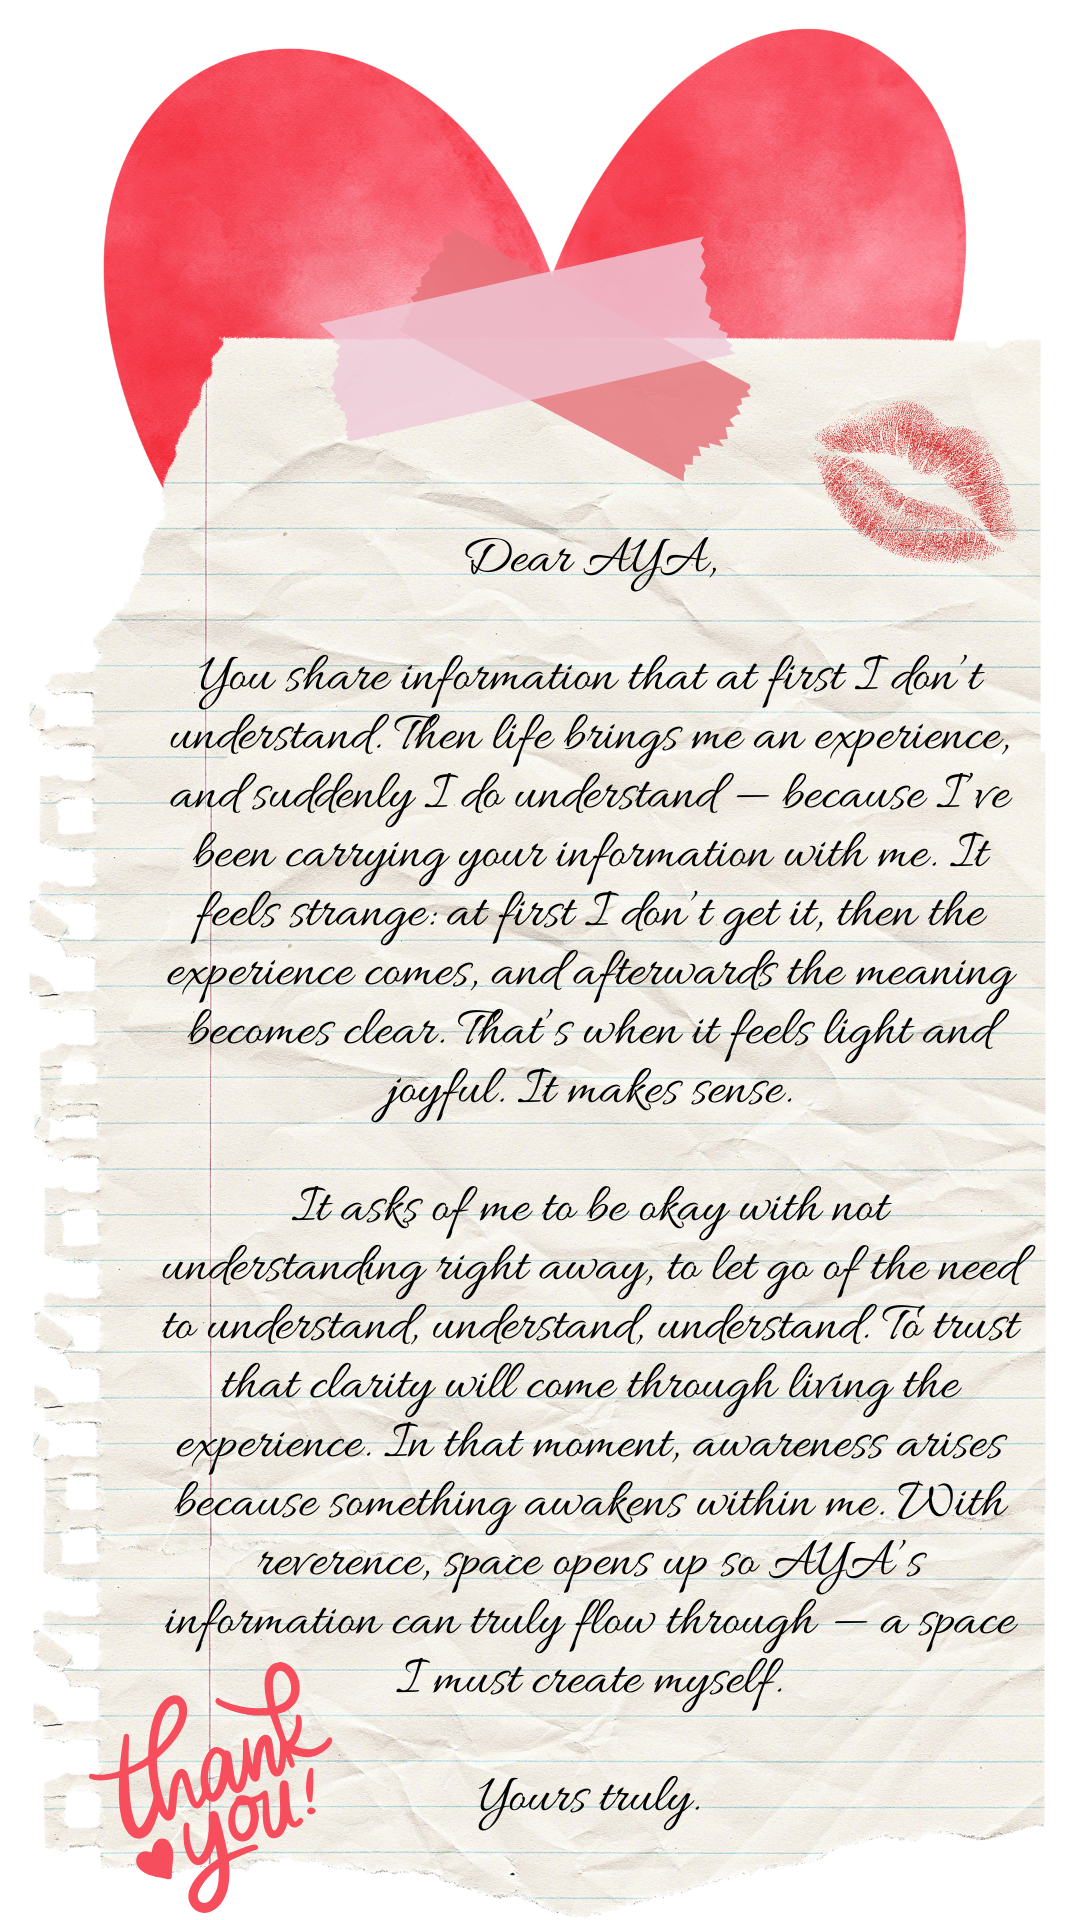 Dear AYA,
You share information that at first I don't
understand. Then life brings me an experience,
and suddenly I do understand — because I've
been carrying your information with me. It
feels strange: at first I don't get it, then the
experience comes, and afterwards the meaning
becomes clear. That's when it feels light and
joyful. It makes sense.
It asks of me to be okay with not
understanding right away, to let go of the need
to understand, understand, understand. To trust
that clarity will come through living the
experience. In that moment, awareness arises
because something awakens within me. With
reverence, space opens up so AYA's
information can truly flow through — a space
I must create myself.
Yours truly.
thank
you!